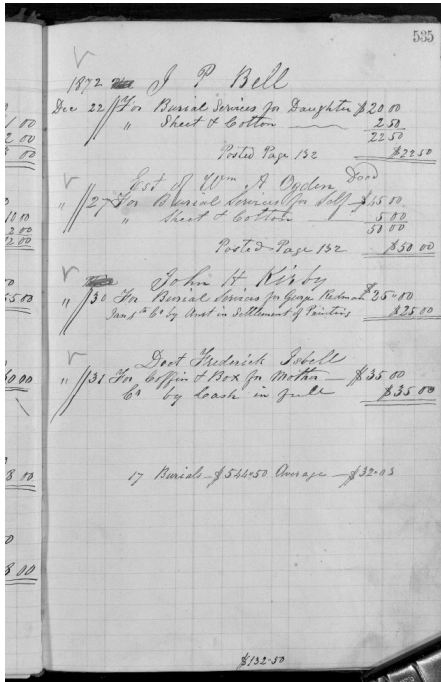 535
1872 J P Bell
Dec 22 // For Burial Services for Daughter $20 00
" Sheet & Cotton 2 50
22 50
Posted Page 132 $22 50
Est of Wm A Ogden Dec'd
" // 27 For Burial Services for Self $45 00
" Sheet & Cotton 5 00
50 00
Posted Page 132 $50 00
John H Kirby
" // 30 For Burial Services for George Redman $25-00
Jan 5th Cr by Amt in Settlement of Painting $25 00
Doct Frederick Isbell
" // 31 For Coffin & Box for Mother $35 00
Cr by Cash in full $35 00
17 Burials $544-50 Average $32-03
$132-50
1 00
2 00
00
10 00
2 00
12 00
00
5 00
0 00
8 00
0
8 00